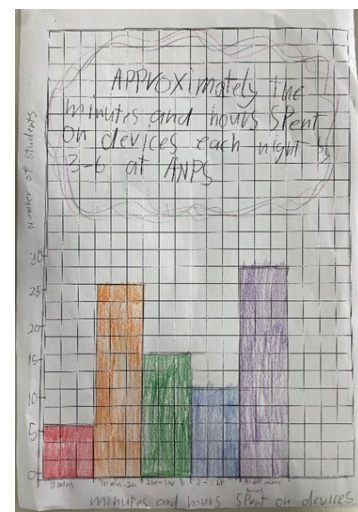 APPROXimately the
minutes and hours SPent
on devices each night by
3-6 at ANPS
Number of students
30
25
20
15
10
5
0
0 mins
minutes and hours SPent on devices